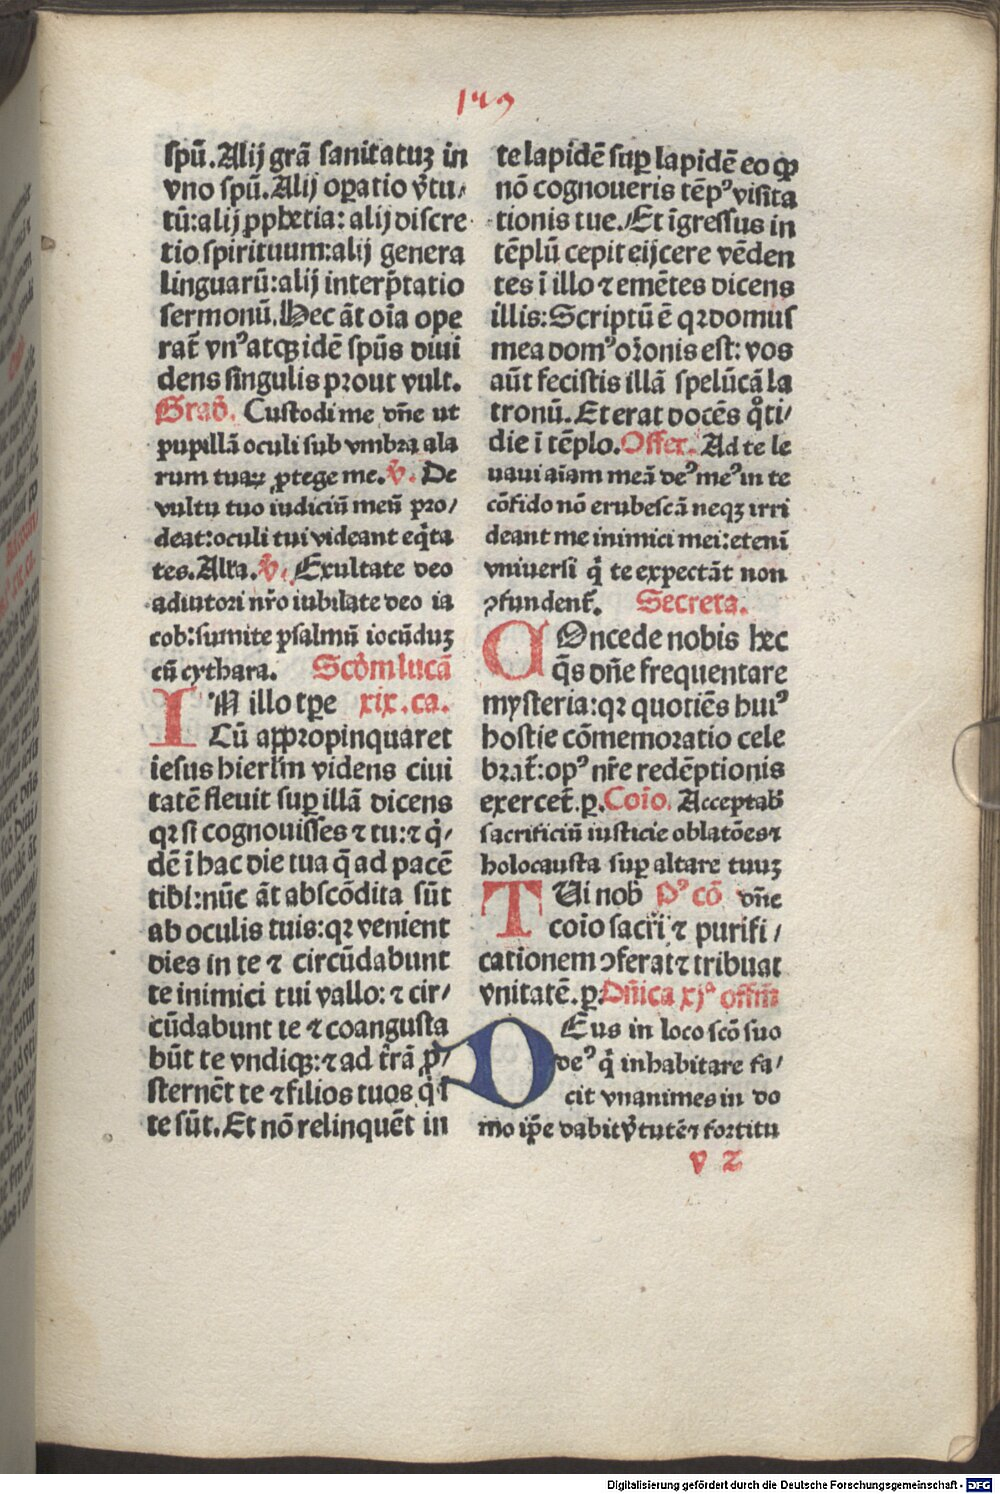 149
spū. Alij grā sanitatuꝫ in
vno spū. Alij oꝑatio v̾tu⸗
tū: alij ꝓphetia: alij discre
tio spirituum: alij genera
linguarū: alij interp̄tatio
sermonū. Hec āt oīa ope
rat̄ vnꝰ atqꝫ idē spūs diui
dens singulis prout vult.
Grad̄. Custodi me dn̄e ut
pupillā oculi sub vmbra ala
rum tuaꝝ ꝓtege me. v̾. De
vultu tuo iudiciū meū pro⸗
deat: oculi tui videant eq̄ta
tes. Alla. v̾. Exultate deo
adiutori nr̄o iubilate deo ia
cob: sumite psalmū iocūduꝫ
cū cythara. Scd̄m lucā
IN illo tꝑe xix. ca.
Cū appropinquaret
iesus hierl̄m videns ciui
tatē fleuit suꝑ illā dicens
qꝛ si cognouisses ⁊ tu: ⁊ q̄⸗
dē ī hac die tua q̄ ad pacē
tibi: nūc āt abscōdita sūt
ab oculis tuis: qꝛ venient
dies in te ⁊ circūdabunt
te inimici tui vallo: ⁊ cir⸗
cūdabunt te ⁊ coangusta
būt te vndiqꝫ: ⁊ ad tr̄ā ꝓ⸗
sternēt te ⁊ filios tuos q̄ ī
te sūt. Et nō relinquēt in
te lapidē suꝑ lapidē eo ꝙ
nō cognoueris tēpꝰ visita
tionis tue. Et īgressus in
tēplū cepit eijcere vēden
tes ī illo ⁊ emētes dicens
illis: Scriptū ē qꝛ domus
mea domꝰ or̄onis est: vos
aūt fecistis illā spelūcā la
tronū. Et erat docēs q̊ti⸗
die ī tēplo. Offer. Ad te le
uaui aīam meā deꝰ meꝰ in te
cōfido nō erubescā neqꝫ irri
deant me inimici mei: etenī
vniuersi q̄ te expectāt non
ꝯfundent̄. Secreta.
COncede nobis hec
q̄s dn̄e frequentare
mysteria: qꝛ quotiēs huiꝰ
hostie cōmemoratio cele
brat̄: opꝰ nr̄e redēptionis
exercet̄. ꝑ. Coīo. Acceptab̄
sacrificiū iusticie oblatōes ⁊
holocausta suꝑ altare tuuꝫ
TUi nob̄ Pꝰ cō dn̄e
coīo sacr̄i ⁊ purifi⸗
cationem ꝯferat ⁊ tribuat
vnitatē. ꝑ. Dn̄ica xjª offm̄
DEus in loco scō suo
deꝰ q̄ inhabitare fa⸗
cit vnanimes in do
mo ip̄e dabit v̾tutē ⁊ fortitu
v 2
Digitalisierung gefördert durch die Deutsche Forschungsgemeinschaft - DFG